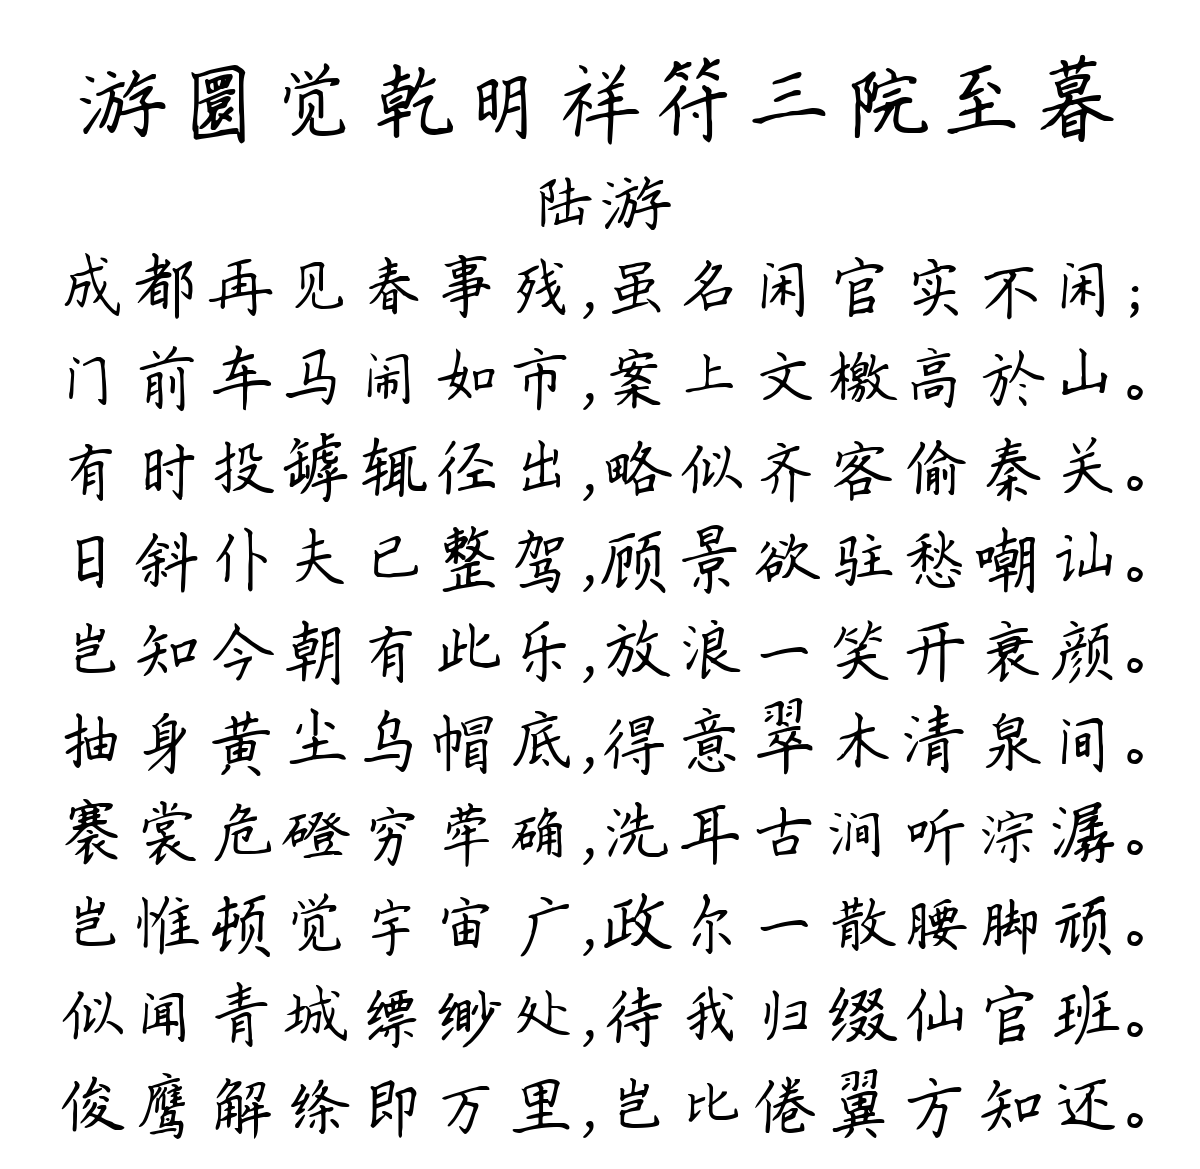 游圜觉乾明祥符三院至暮
陆游
成都再见春事残,虽名闲官实不闲;
门前车马闹如市,案上文檄高於山。
有时投罅辄径出,略似齐客偷秦关。
日斜仆夫已整驾,顾景欲驻愁嘲讪。
岂知今朝有此乐,放浪一笑开衰颜。
抽身黄尘乌帽底,得意翠木清泉间。
褰裳危磴穷荦确,洗耳古涧听淙潺。
岂惟顿觉宇宙广,政尔一散腰脚顽。
似闻青城缥缈处,待我归缀仙官班。
俊鹰解绦即万里,岂比倦翼方知还。